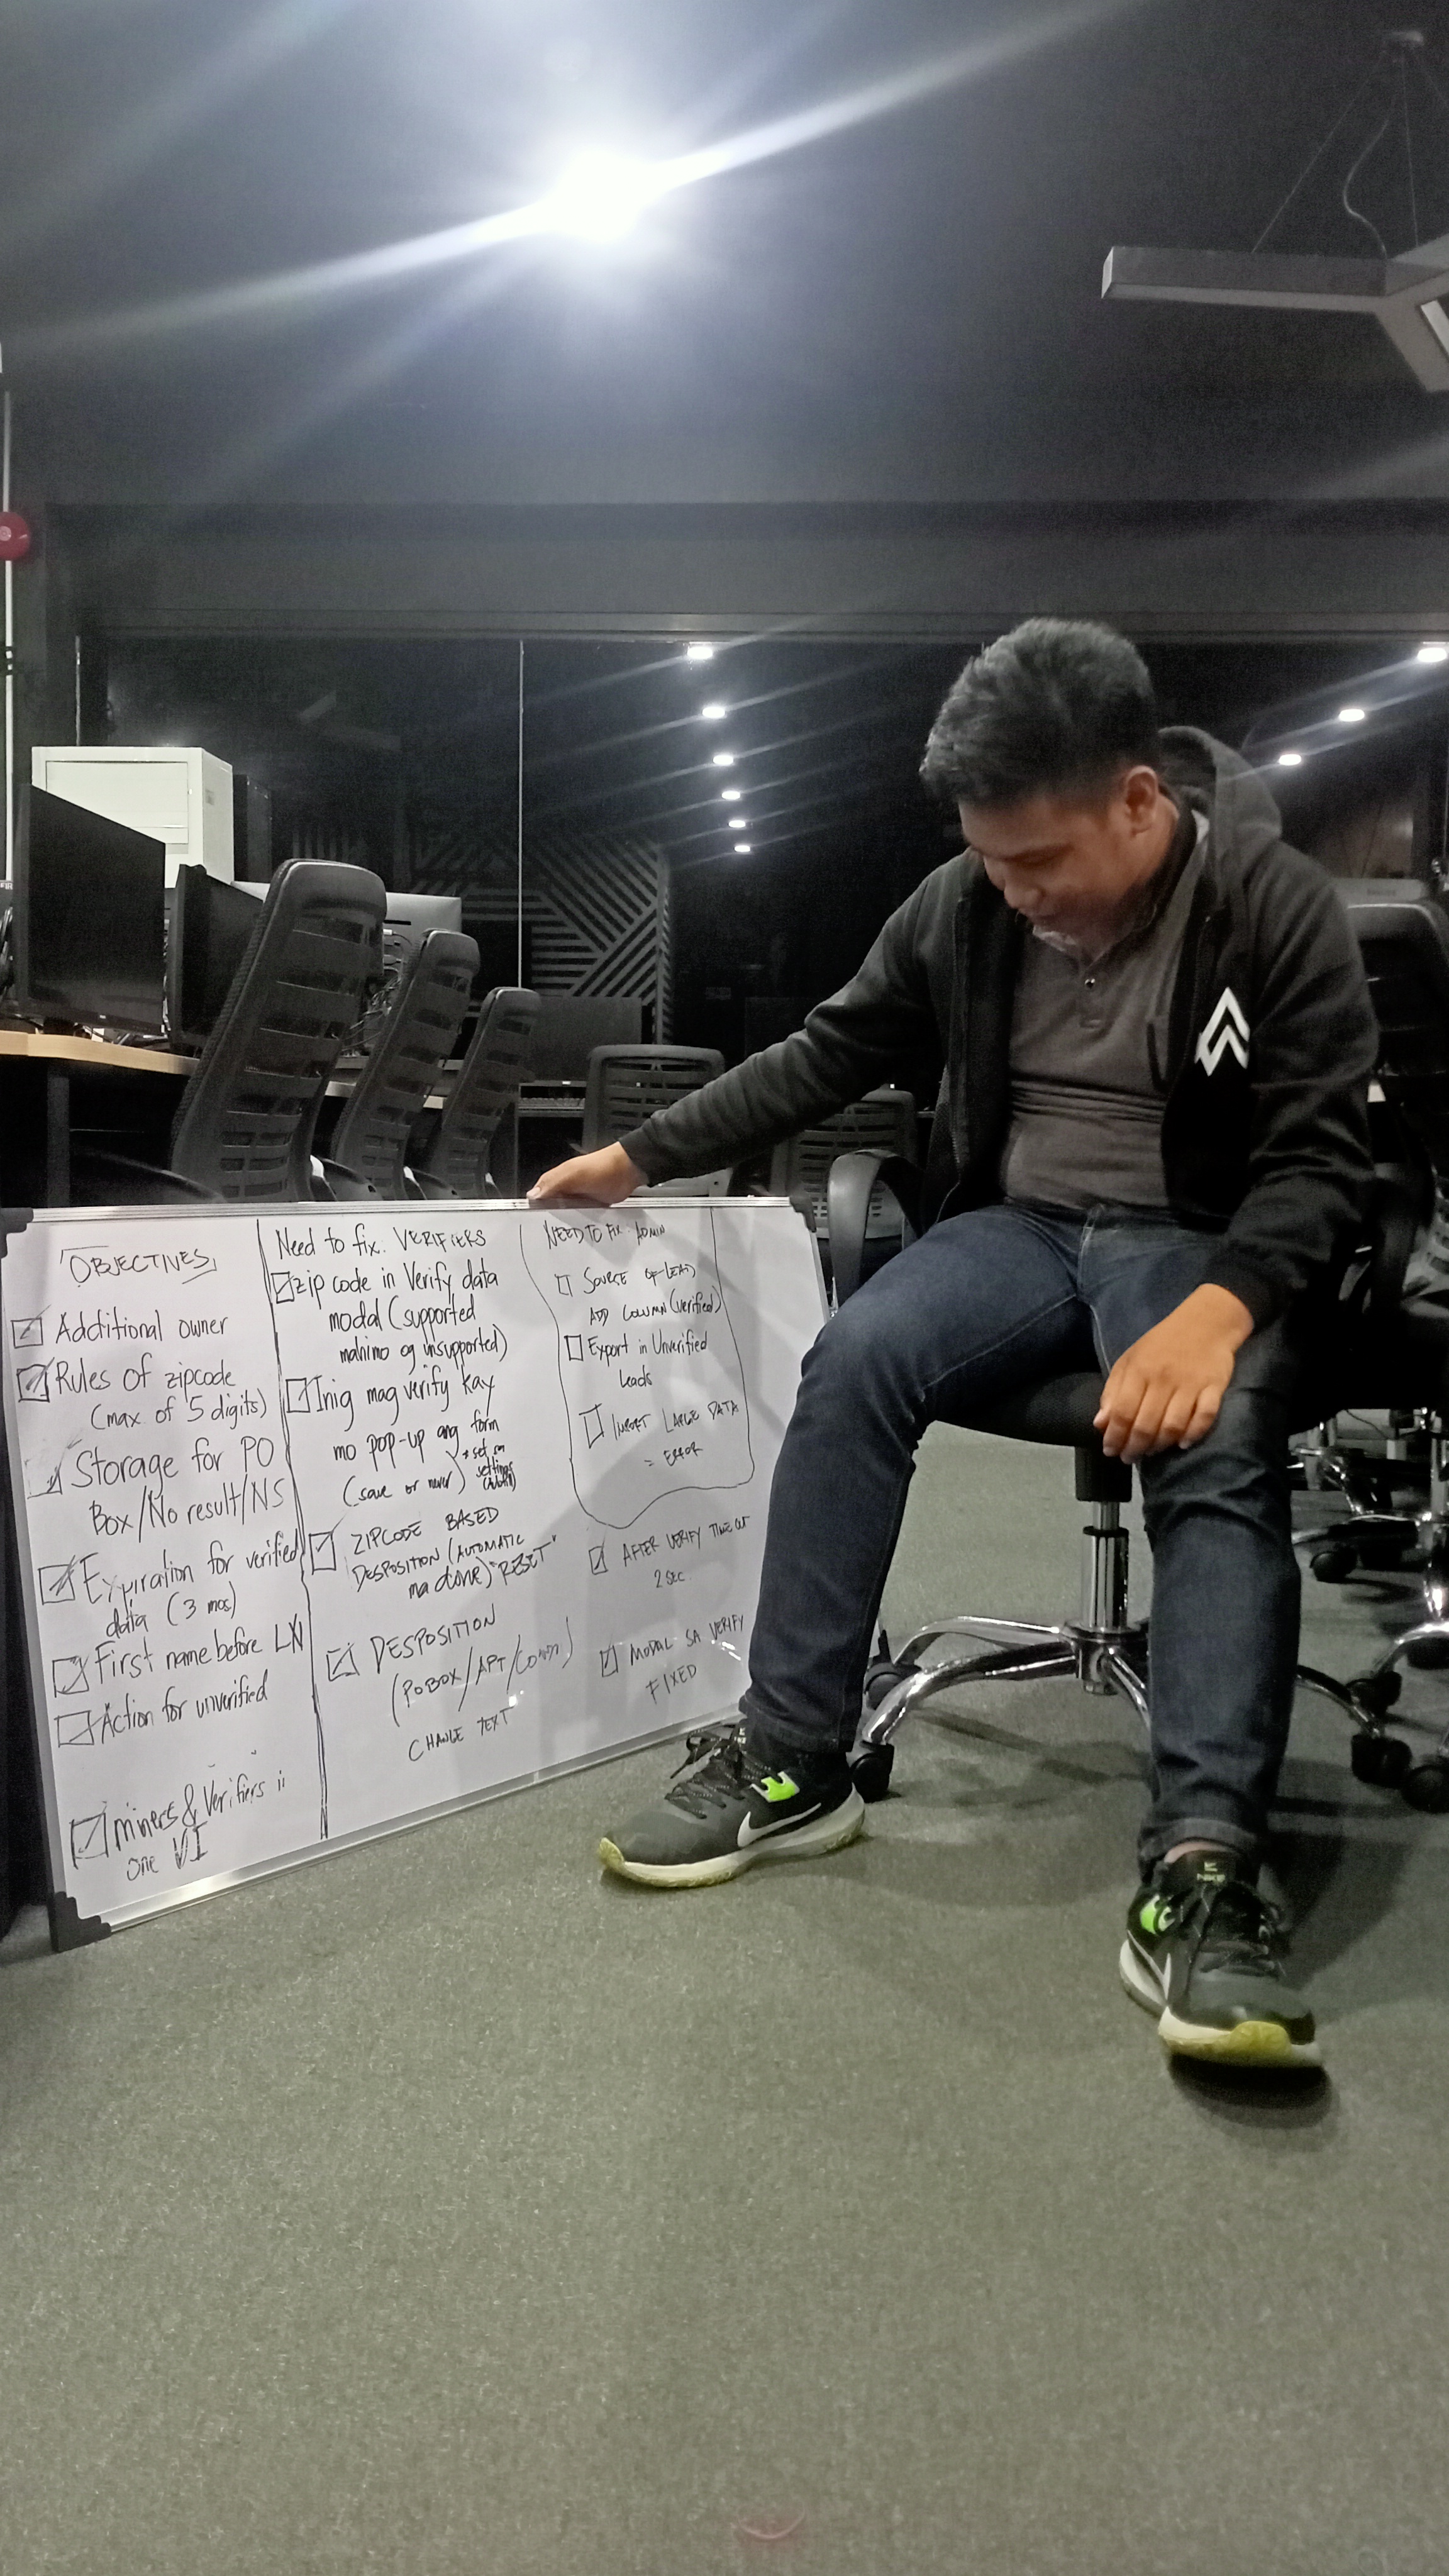 OBJECTIVES
Additional owner
Rules of zipcode
(max of 5 digits)
Storage for PO
Box/No result/NS
Expiration for verified
data (3 mos)
First name before LN
Action for unverified
miners & Verifiers ii
one VI
Need to fix: VERIFIERS
zip code in Verify data
modal (supported
mahimo og unsupported)
Inig mag verify kay
mo pop-up ang form
(save or never)
* set sa
settings
ZIPCODE BASED
DESPOSITION (AUTOMATIC
ma done) "RESET"
DESPOSITION
(POBOX/APT/CONDO)
CHANGE TEXT
NEED TO FIX: ADMIN
SOURCE OF LEAD
ADD COLUMN (verified)
Export in Unverified
leads
IMPORT LARGE DATA
= ERROR
AFTER VERIFY TIME OUT
2 SEC.
MODAL SA VERIFY
FIXED